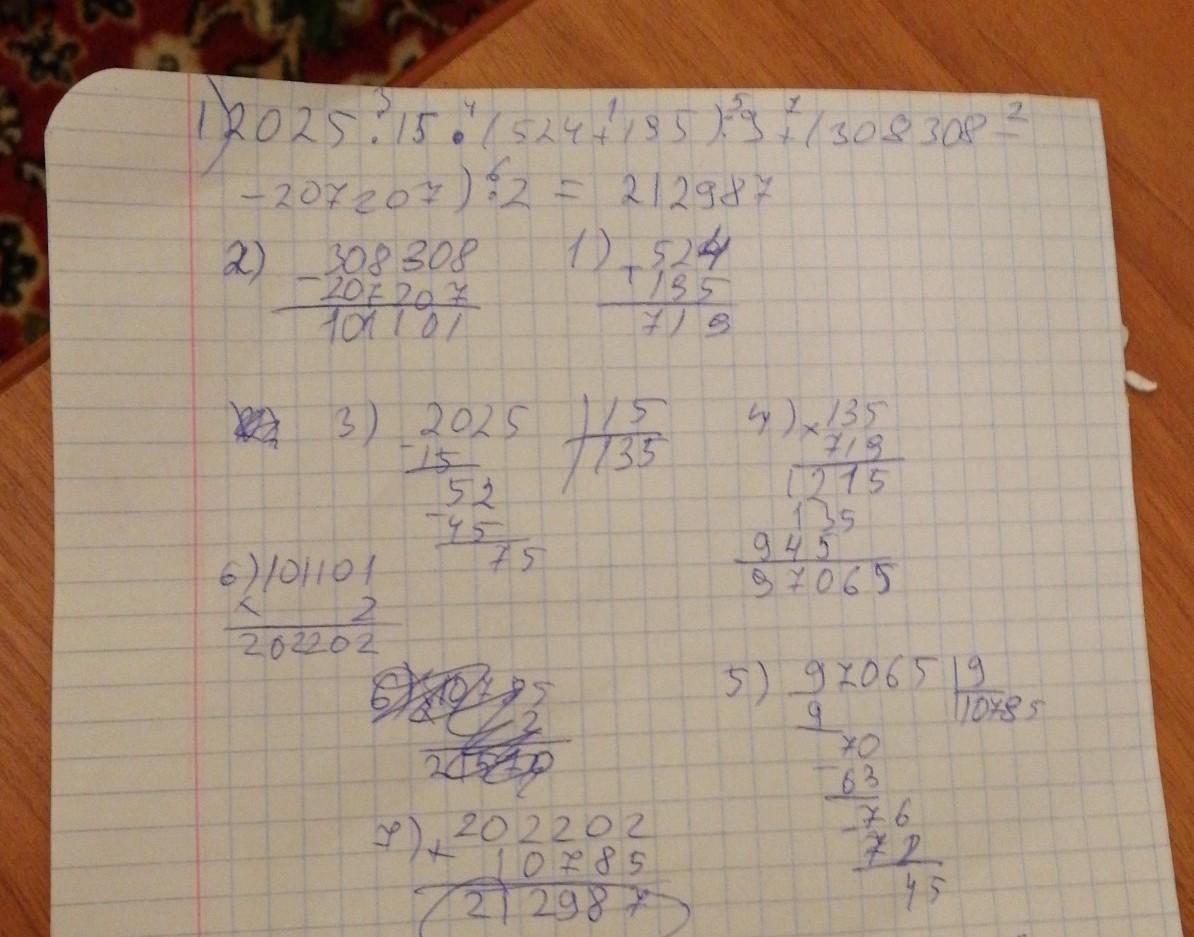 1) 2025 : 15 • (524 + 195) : 9 + (308308 -
- 207207) · 2 = 212987
2) - 308 308
207 207
101 101
1) + 524
195
719
3) 2025 | 15
- 15 | 135
52
- 45
75
4) × 135
719
1215
135
945
97065
6) 101101
× 2
202202
5) 97065 | 9
9 | 10785
70
- 63
- 76
72
45
7) + 202202
10785
212987